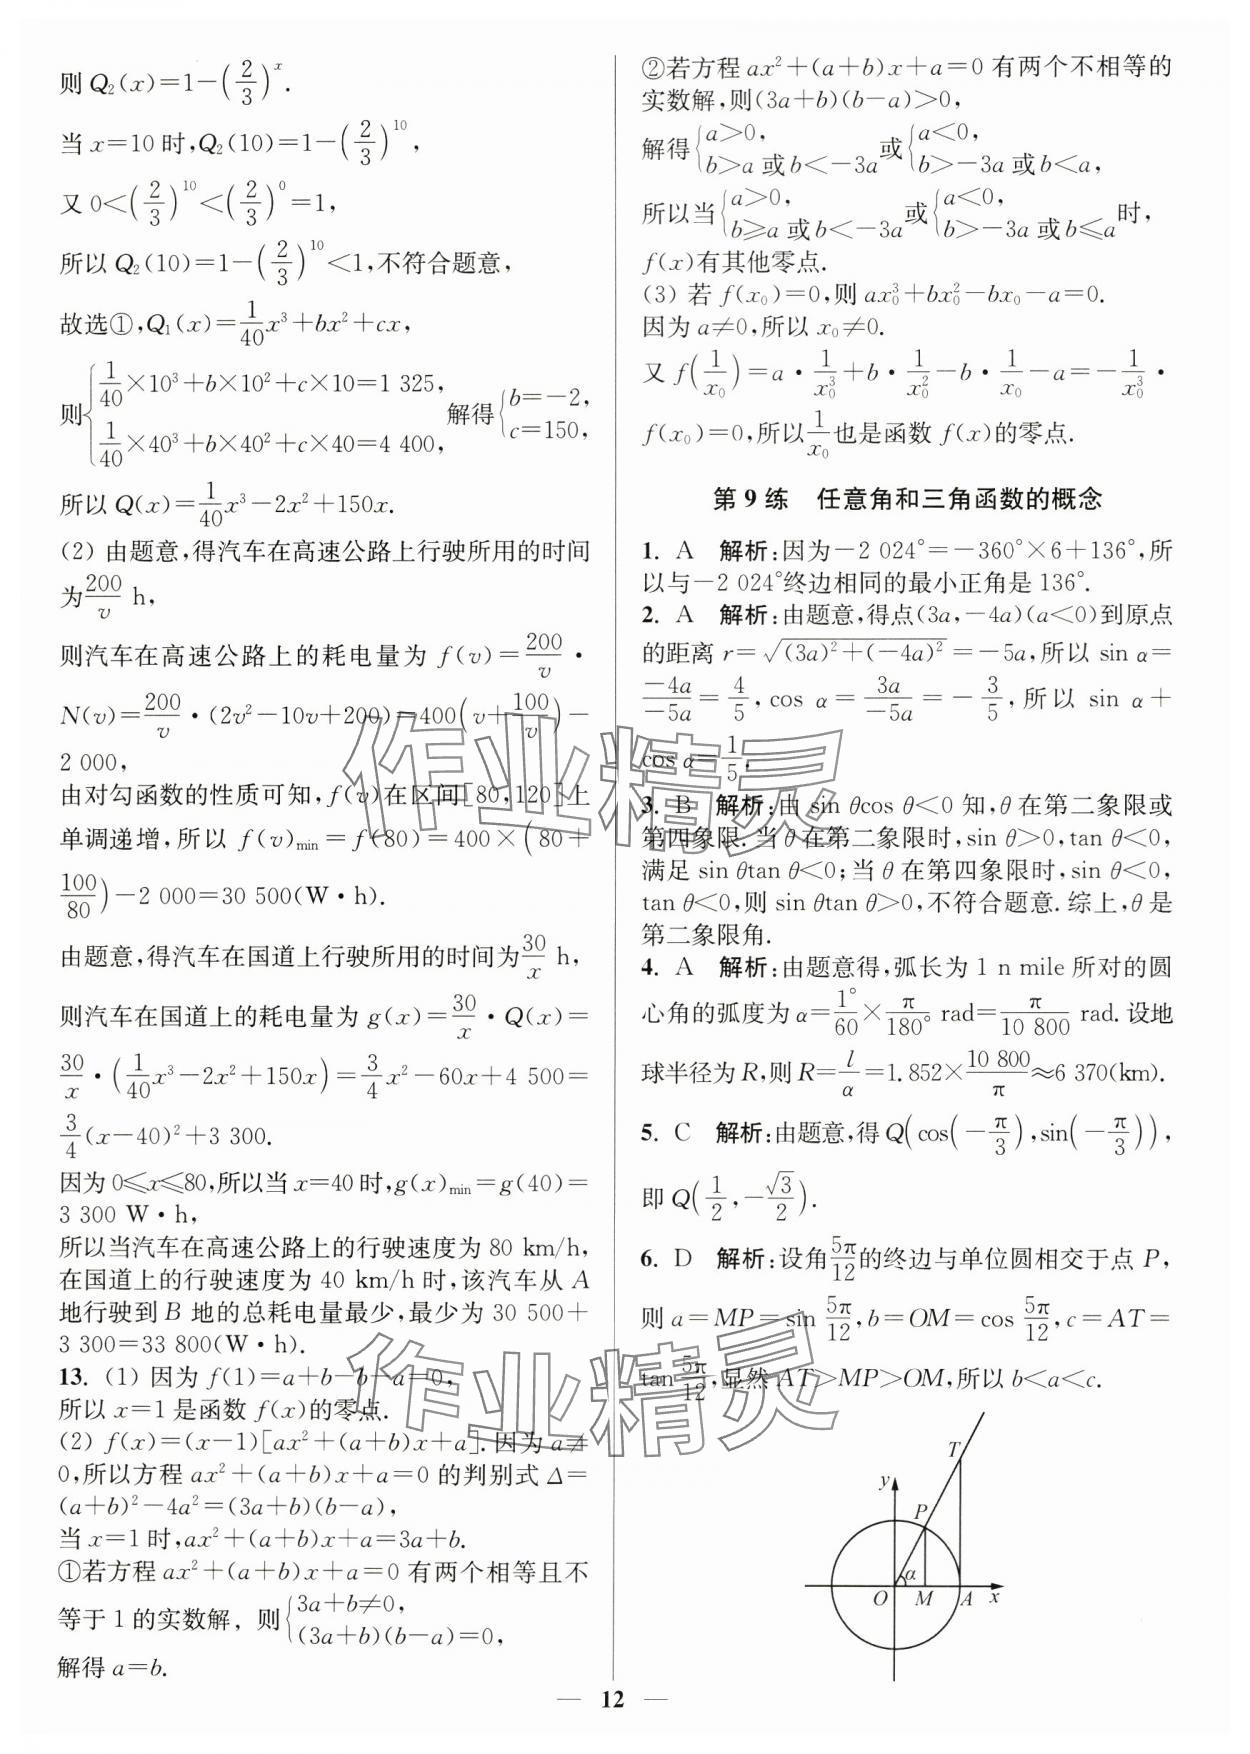 则 Q₂(x)=1-(2/3)^x.
当 x=10 时,Q₂(10)=1-(2/3)^10,
又 0<(2/3)^10<(2/3)^0=1,
所以 Q₂(10)=1-(2/3)^10<1,不符合题意,
故选①,Q₁(x)=1/40x³+bx²+cx,
则{1/40×10³+b×10²+c×10=1 325, 1/40×40³+b×40²+c×40=4 400, 解得{b=-2, c=150,
所以 Q(x)=1/40x³-2x²+150x.
(2) 由题意,得汽车在高速公路上行驶所用的时间
为200/v h,
则汽车在高速公路上的耗电量为 f(v)=200/v·
N(v)=200/v·(2v²-10v+200)=400(v+100/v)-
2 000,
由对勾函数的性质可知,f(v)在区间[80,120]上
单调递增,所以 f(v)min=f(80)=400×(80+
100/80)-2 000=30 500(W·h).
由题意,得汽车在国道上行驶所用的时间为30/x h,
则汽车在国道上的耗电量为 g(x)=30/x·Q(x)=
30/x·(1/40x³-2x²+150x)=3/4x²-60x+4 500=
3/4(x-40)²+3 300.
因为 0⩽x⩽80,所以当 x=40 时,g(x)min=g(40)=
3 300 W·h,
所以当汽车在高速公路上的行驶速度为 80 km/h,
在国道上的行驶速度为 40 km/h 时,该汽车从 A
地行驶到 B 地的总耗电量最少,最少为 30 500+
3 300=33 800(W·h).
13. (1) 因为 f(1)=a+b-b-a=0,
所以 x=1 是函数 f(x)的零点.
(2) f(x)=(x-1)[ax²+(a+b)x+a].因为 a≠
0,所以方程 ax²+(a+b)x+a=0 的判别式 Δ=
(a+b)²-4a²=(3a+b)(b-a),
当 x=1 时,ax²+(a+b)x+a=3a+b.
①若方程 ax²+(a+b)x+a=0 有两个相等且不
等于 1 的实数解, 则{3a+b≠0, (3a+b)(b-a)=0,
解得 a=b.
②若方程 ax²+(a+b)x+a=0 有两个不相等的
实数解,则(3a+b)(b-a)>0,
解得{a>0, b>a 或 b<-3a 或{a<0, b>-3a 或 b<a,
所以当{a>0, b⩾a 或 b<-3a 或{a<0, b>-3a 或 b⩽a 时,
f(x)有其他零点.
(3) 若 f(x₀)=0,则 ax₀³+bx₀²-bx₀-a=0.
因为 a≠0,所以 x₀≠0.
又 f(1/x₀)=a·1/x₀³+b·1/x₀²-b·1/x₀-a=-1/x₀³·
f(x₀)=0,所以1/x₀也是函数 f(x)的零点.
第 9 练 任意角和三角函数的概念
1. A 解析:因为-2 024°=-360°×6+136°,所
以与-2 024°终边相同的最小正角是 136°.
2. A 解析:由题意,得点(3a,-4a)(a<0)到原点
的距离 r=√((3a)²+(-4a)²)=-5a,所以 sin α=
-4a/-5a=4/5,cos α=3a/-5a=-3/5,所以 sin α+
cos α=1/5.
3. B 解析:由 sin θcos θ<0 知,θ 在第二象限或
第四象限.当 θ 在第二象限时,sin θ>0,tan θ<0,
满足 sin θtan θ<0;当 θ 在第四象限时,sin θ<0,
tan θ<0,则 sin θtan θ>0,不符合题意.综上,θ 是
第二象限角.
4. A 解析:由题意得,弧长为 1 n mile 所对的圆
心角的弧度为 α=1°/60×π/180° rad=π/10 800 rad.设地
球半径为 R,则 R=l/α=1.852×10 800/π≈6 370(km).
5. C 解析:由题意,得 Q(cos(-π/3),sin(-π/3)),
即 Q(1/2,-√3/2).
6. D 解析:设角5π/12的终边与单位圆相交于点 P,
则 a=MP=sin 5π/12,b=OM=cos 5π/12,c=AT=
tan 5π/12,显然 AT>MP>OM,所以 b<a<c.
T
y
P
α
O M A x
12
作业精灵
作业精灵